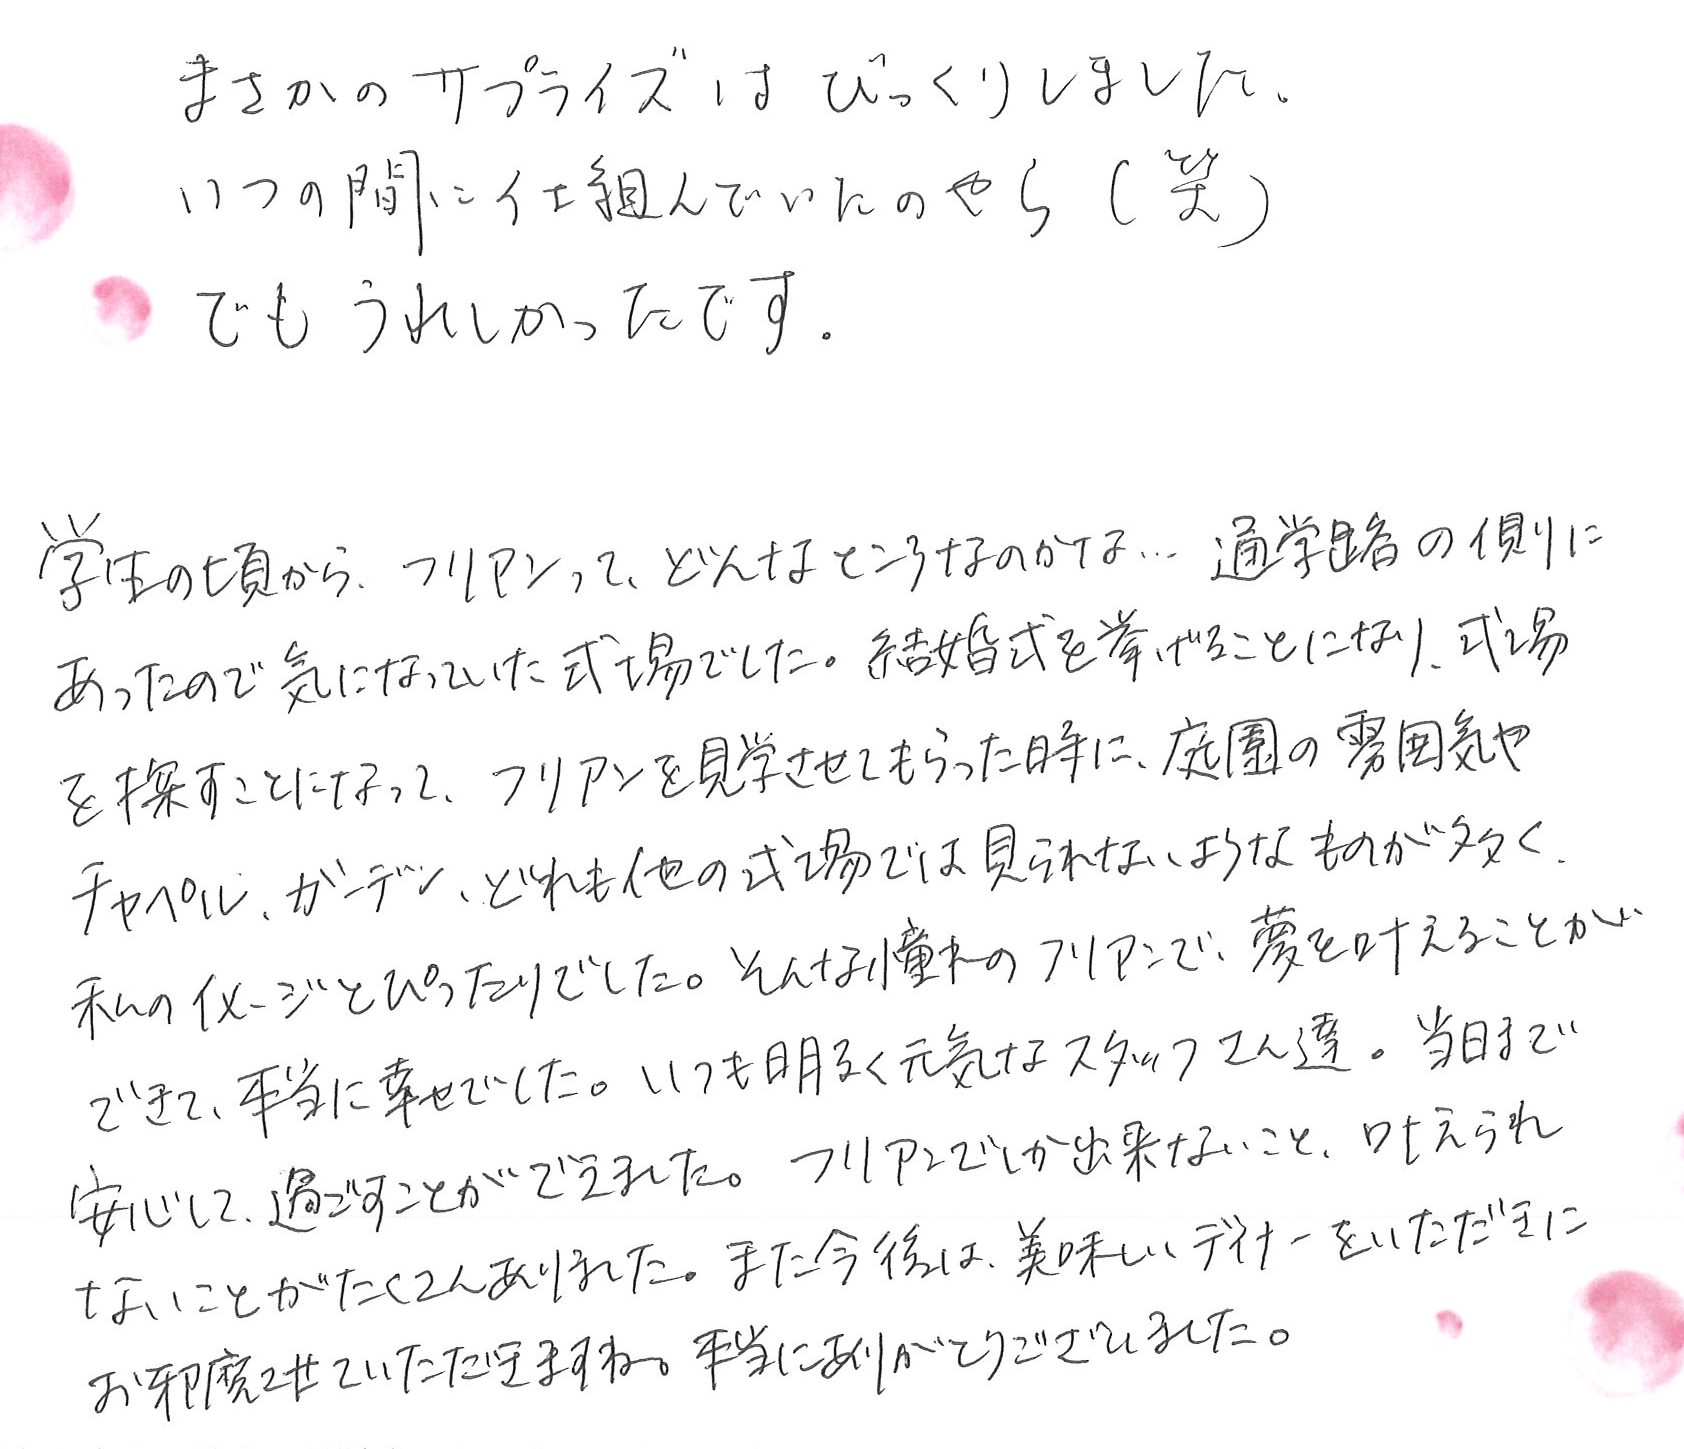 まさかのサプライズはびっくりしました、
いつの間に仕組んでいたのやら(笑)
でもうれしかったです.
学生の頃から、フリアンって、どんなところなのかな… 通学路の側に
あったので気になっていた式場でした。結婚式を挙げることになり、式場
を探すことになって、フリアンを見学させてもらった時に、庭園の雰囲気や
チャペル、ガーデン、どれも他の式場では見られないようなものが多く、
私のイメージとぴったりでした。そんな憧れのフリアンで、夢を叶えることが
できて、本当に幸せでした。いつも明るく元気なスタッフさん達。当日まで
安心して、過ごすことができました。フリアンでしか出来ないこと、叶えられ
ないことがたくさんありました。また今後は、美味しいディナーをいただきに
お邪魔させていただきますね。本当にありがとうございました。